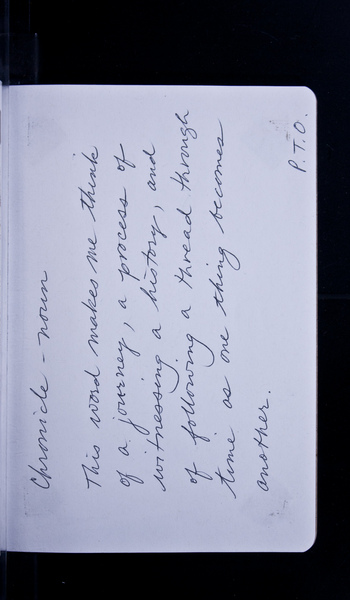 Chronicle - noun
This word makes me think
of a journey, a process of
witnessing a history, and
of following a thread through
time as one thing becomes
another.
P.T.O.